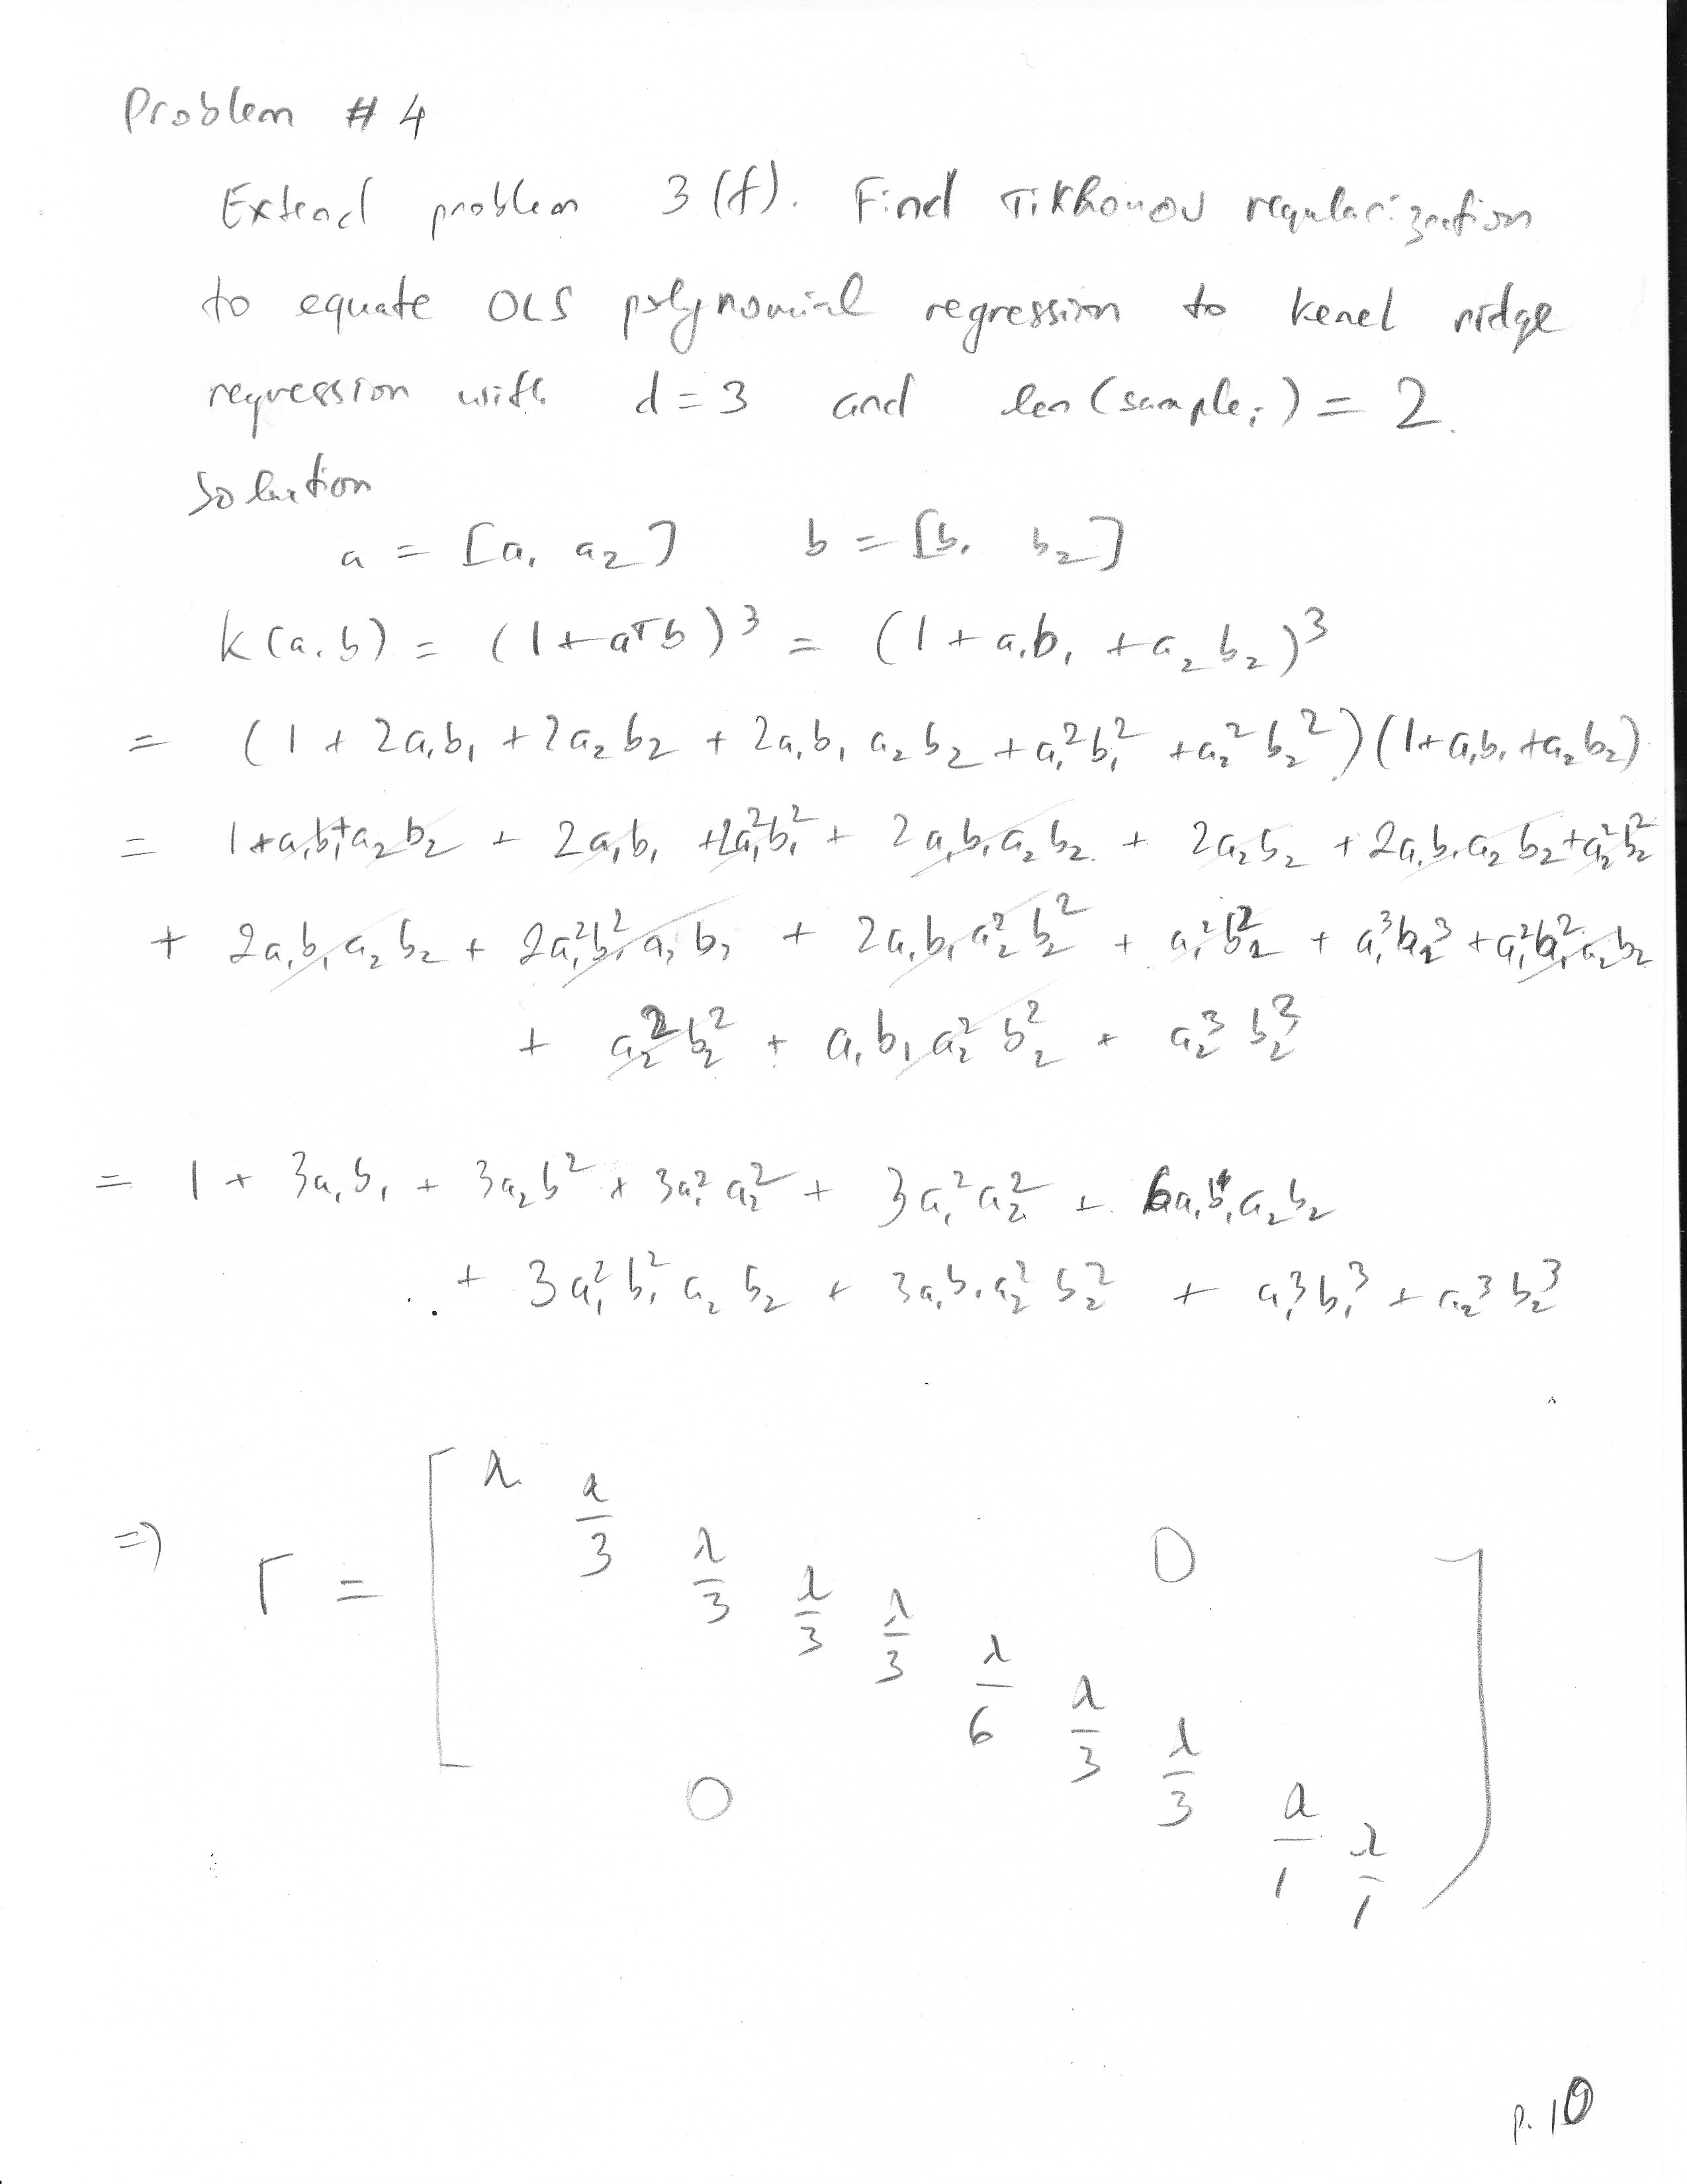 Problem # 4
Extend problem 3 (f). Find Tikhonov regularization
to equate OLS polynomial regression to kenel ridge
regression with d = 3 and len (sample_i) = 2.
Solution
a = [a₁ a₂] b = [b₁ b₂]
k(a, b) = (1 + aᵀb)³ = (1 + a₁b₁ + a₂b₂)³
= (1 + 2a₁b₁ + 2a₂b₂ + 2a₁b₁a₂b₂ + a₁²b₁² + a₂²b₂²)(1 + a₁b₁ + a₂b₂)
= 1 + a₁b₁ + a₂b₂ + 2a₁b₁ + 2a₁²b₁² + 2a₁b₁a₂b₂ + 2a₂b₂ + 2a₁b₁a₂b₂ + a₂²b₂²
+ 2a₁b₁a₂b₂ + 2a₁²b₁²a₂b₂ + 2a₁b₁a₂²b₂² + a₁²b₁² + a₁³b₁³ + a₁²b₁²a₂b₂
+ a₂²b₂² + a₁b₁a₂²b₂² + a₂³b₂³
= 1 + 3a₁b₁ + 3a₂b² + 3a₁²a₂² + 3a₁²a₂² + 6a₁b₁a₂b₂
+ 3a₁²b₁²a₂b₂ + 3a₁b₁a₂²b₂² + a₁³b₁³ + a₂³b₂³
⇒ Γ = [ λ λ/3 λ/3 λ/3 λ/3 λ/6 λ/3 λ/3 λ/1 λ/1 ]
0
0
p. 10